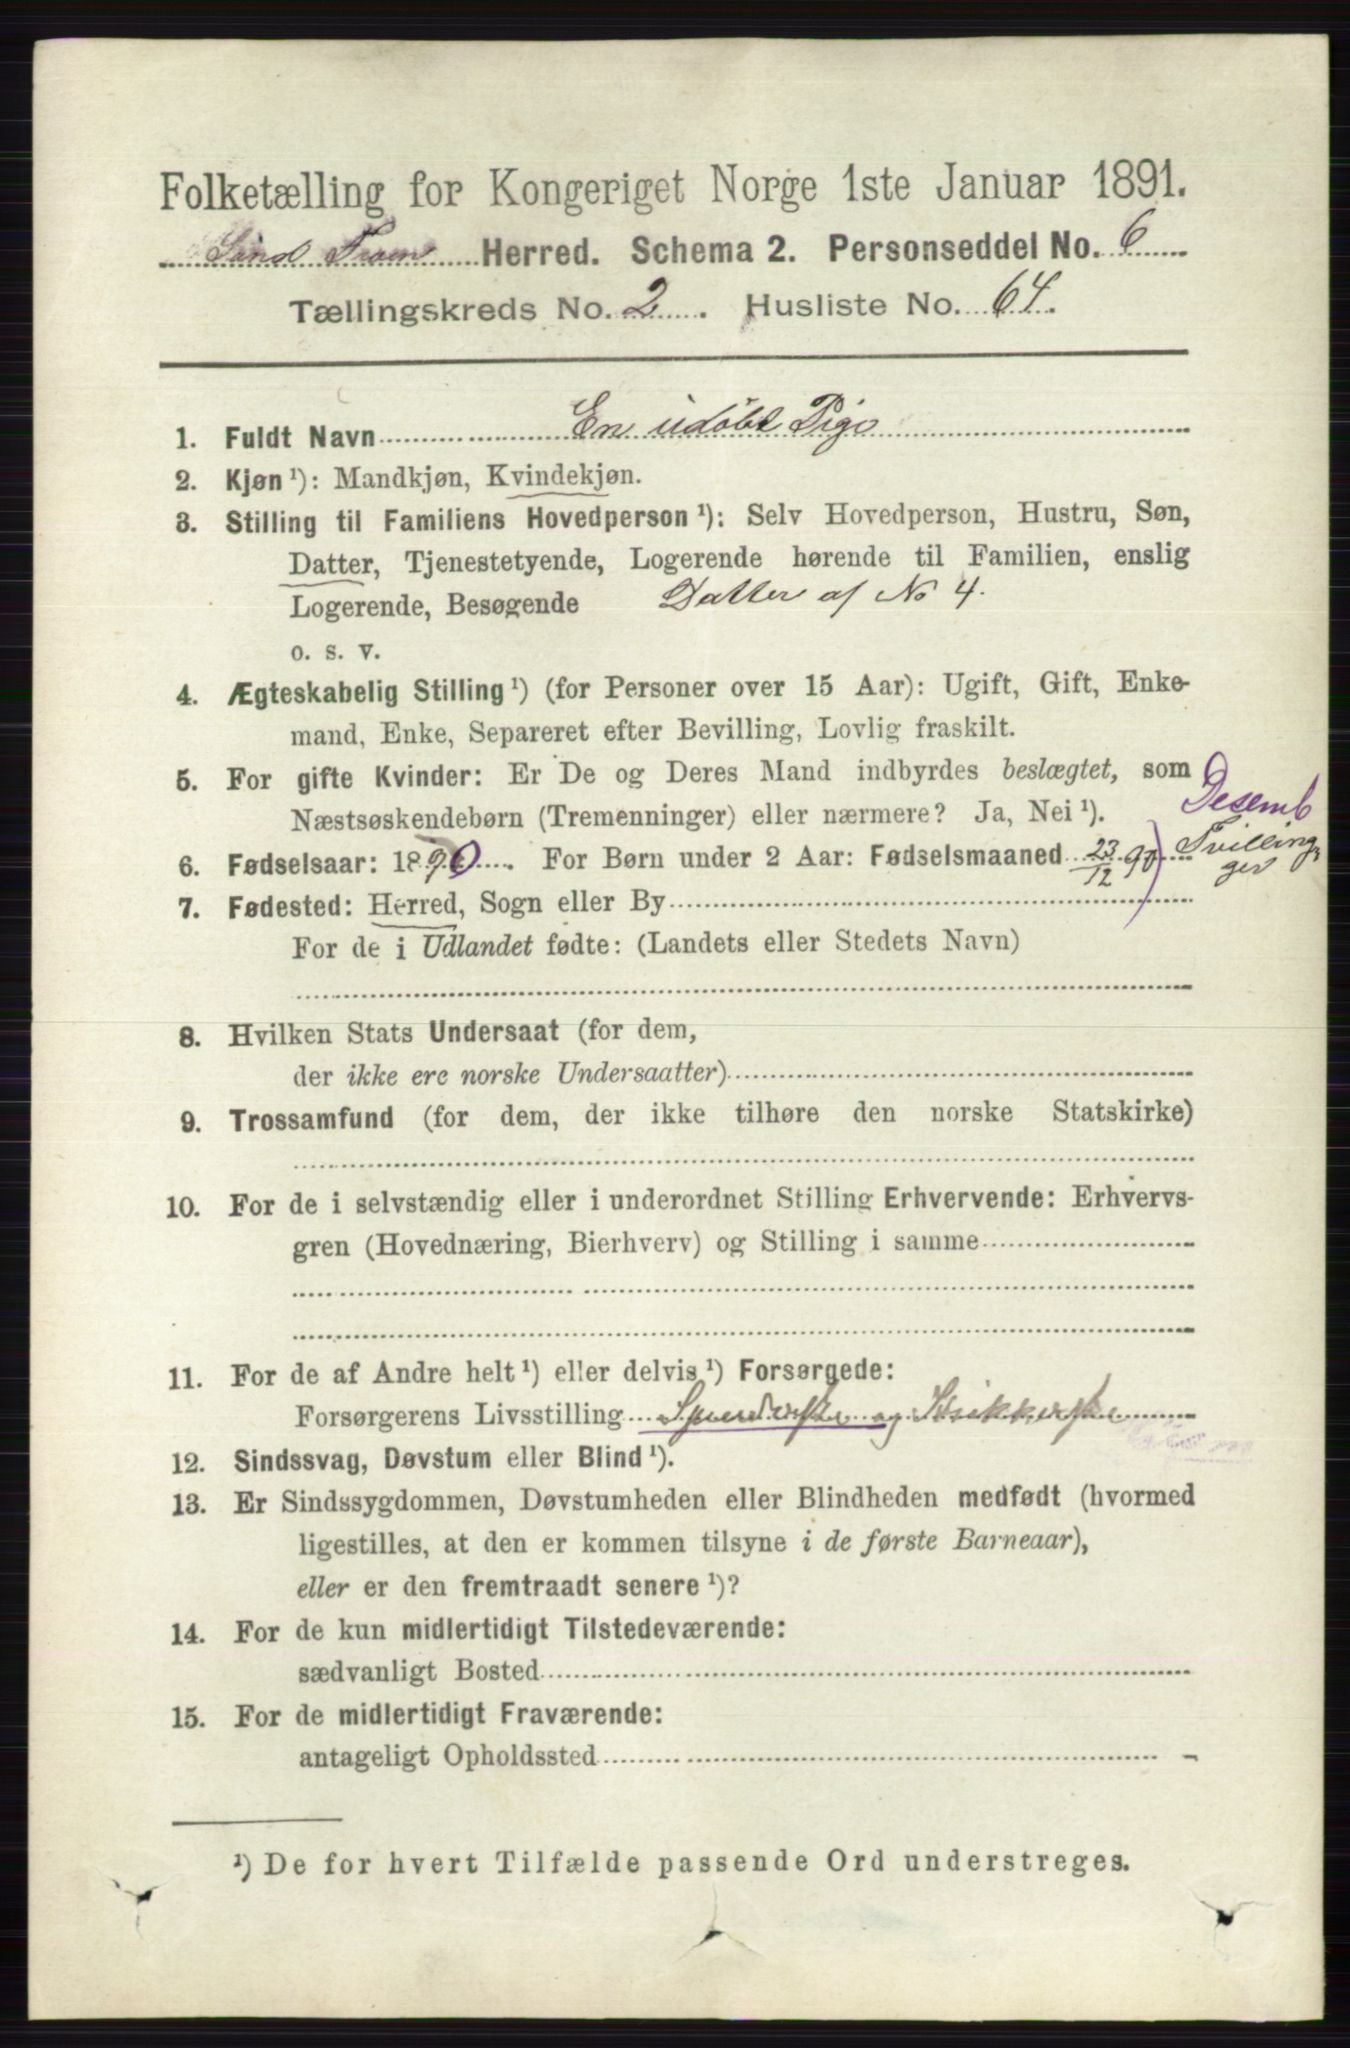 Folketælling for Kongeriget Norge 1ste Januar 1891.
Herred. Schema 2. Personseddel No. 6
Tællingskreds No. 2. Husliste No. 64.
1. Fuldt Navn En udøbt Pige
2. Kjøn ¹): Mandkjøn, Kvindekjøn.
3. Stilling til Familiens Hovedperson ¹): Selv Hovedperson, Hustru, Søn,
Datter, Tjenestetyende, Logerende hørende til Familien, enslig
Logerende, Besøgende Datter af No 4.
o. s. v.
4. Ægteskabelig Stilling ¹) (for Personer over 15 Aar): Ugift, Gift, Enke-
mand, Enke, Separeret efter Bevilling, Lovlig fraskilt.
5. For gifte Kvinder: Er De og Deres Mand indbyrdes beslægtet, som
Næstsøskendebørn (Tremenninger) eller nærmere? Ja, Nei ¹).
Desemb
6. Fødselsaar: 1890. For Børn under 2 Aar: Fødselsmaaned 23/12 90 Tvillinger
7. Fødested: Herred, Sogn eller By
For de i Udlandet fødte: (Landets eller Stedets Navn)
8. Hvilken Stats Undersaat (for dem,
der ikke ere norske Undersaatter)
9. Trossamfund (for dem, der ikke tilhøre den norske Statskirke)
10. For de i selvstændig eller i underordnet Stilling Erhvervende: Erhvervs-
gren (Hovednæring, Bierhverv) og Stilling i samme
11. For de af Andre helt ¹) eller delvis ¹) Forsørgede:
Forsørgerens Livsstilling og
12. Sindssvag, Døvstum eller Blind ¹).
13. Er Sindssygdommen, Døvstumheden eller Blindheden medfødt (hvormed
ligestilles, at den er kommen tilsyne i de første Barneaar),
eller er den fremtraadt senere ¹)?
14. For de kun midlertidigt Tilstedeværende:
sædvanligt Bosted
15. For de midlertidigt Fraværende:
antageligt Opholdssted
¹) De for hvert Tilfælde passende Ord understreges.